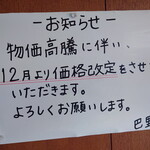 －お知らせ－
物価高騰に伴い、
12月より価格改定をさせ
いただきます。
よろしくお願いします。
巴